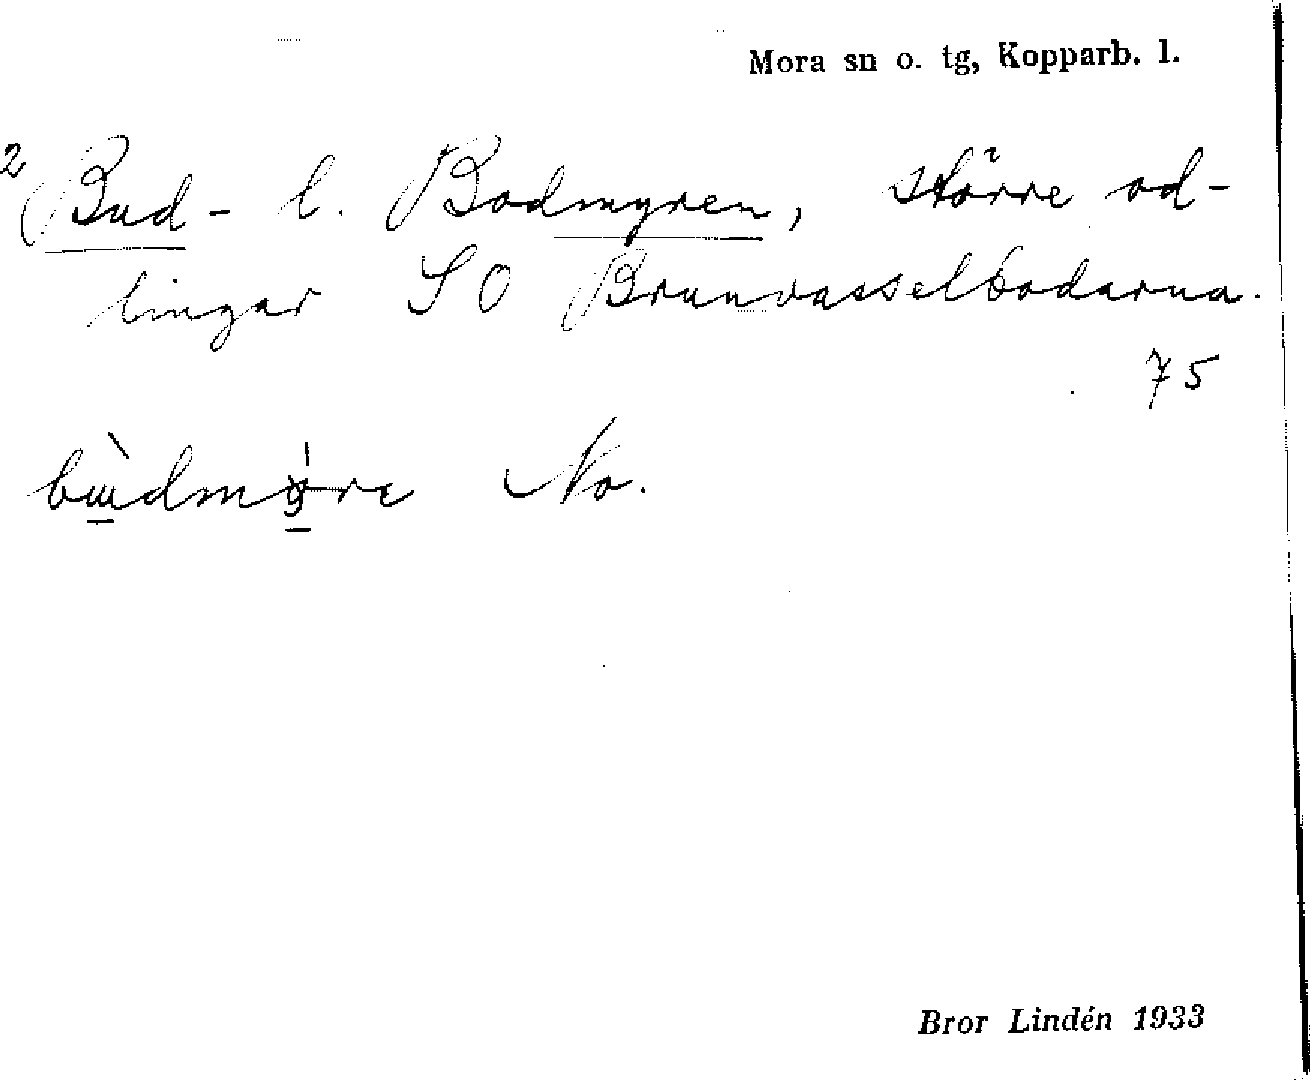 Mora sn o. tg, Kopparb. l.
2 Bud- l. Bodmyren, större od-
lingar SO Brunvasselbodarna.
75
bùdmøre No.
Bror Lindén 1933